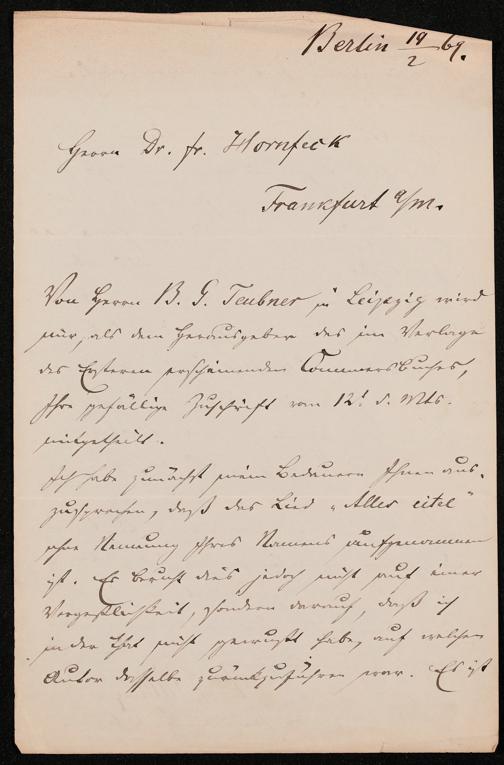 Berlin 19/2 69.
Herrn Dr. fr. Hornfeck
Frankfurt a/m.
Von Herrn B. G. Teubner in Leipzig wird
mir, als dem Herausgeber des im Verlage
des Ersteren erscheinenden Commersbuches,
Ihre gefällige Zuschrift vom 12t. d. Mts.
mitgetheilt.
Ich habe zunächst mein Bedauern Ihnen aus-
zusprechen, daß das Lied „Alles eitel"
ohne Nennung Ihres Namens aufgenommen
ist. Es beruht dies jedoch nicht auf einer
Vergeßlichkeit, sondern darauf, daß ich
in der That nicht gewußt habe, auf welchen
Autor dasselbe zurückzuführen war. Es ist